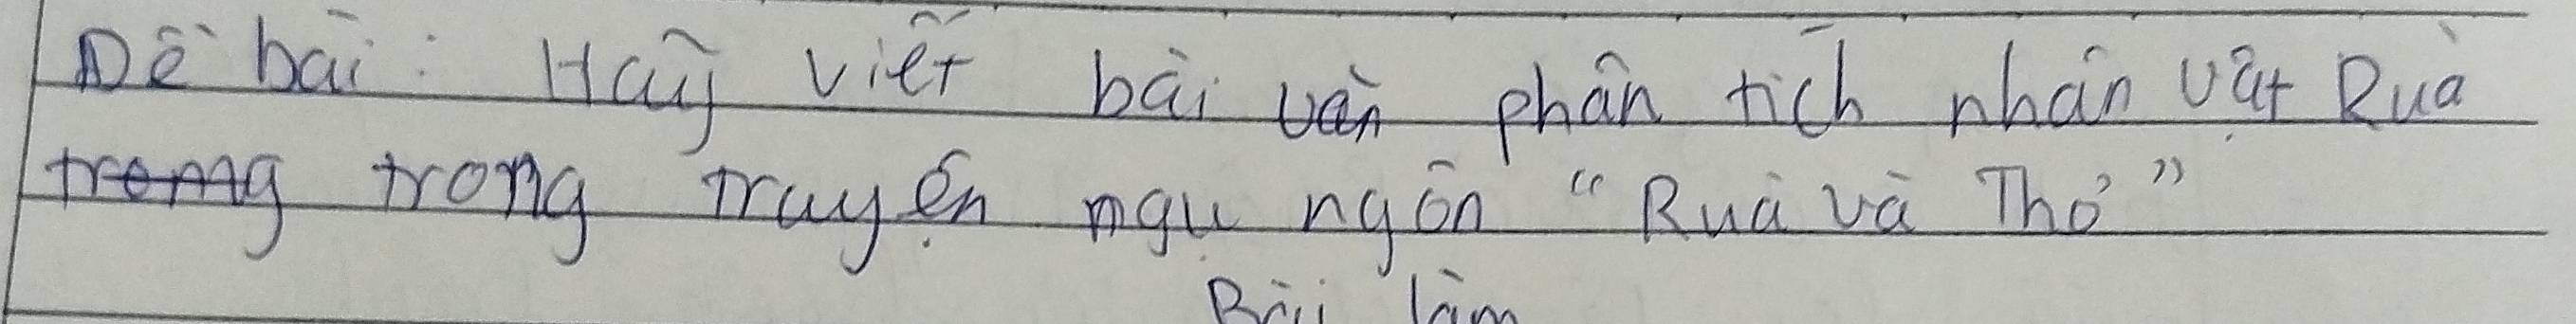 Dề bài: Hãy viết bài văn phân tích nhân vật Rùa
trong trong truyện ngụ ngôn "Rùa và Thỏ"
Bài làm